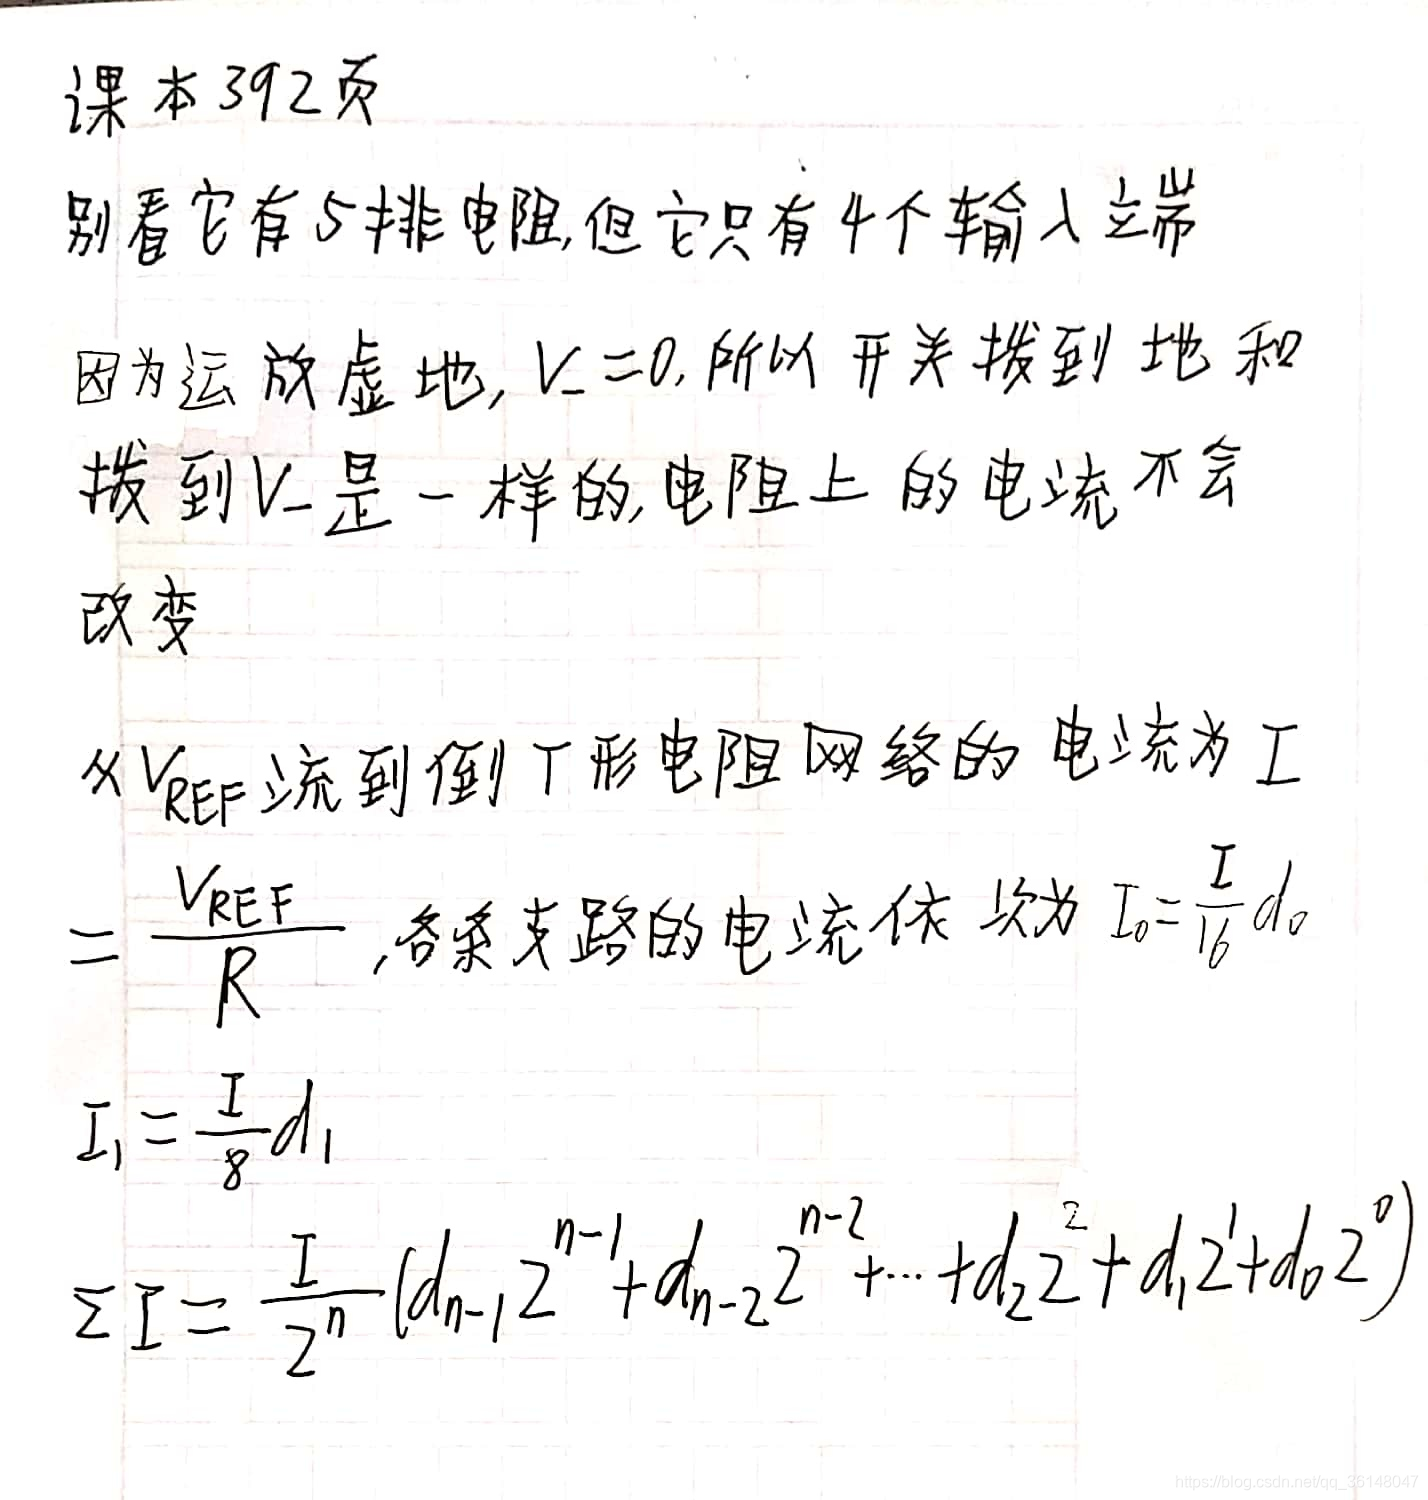 课本392页
别看它有5排电阻,但它只有4个输入端
因为运放虚地,V₋=0,所以开关拨到地和
拨到V₋是一样的,电阻上的电流不会
改变
从V_REF流到倒T形电阻网络的电流为I
= V_REF/R ,各条支路的电流依次为 I₀=I/16 d₀
I₁=I/8 d₁
ΣI=I/2ⁿ(dₙ₋₁2ⁿ⁻¹+dₙ₋₂2ⁿ⁻²+…+d₂2²+d₁2¹+d₀2⁰)
https://blog.csdn.net/qq_36148047